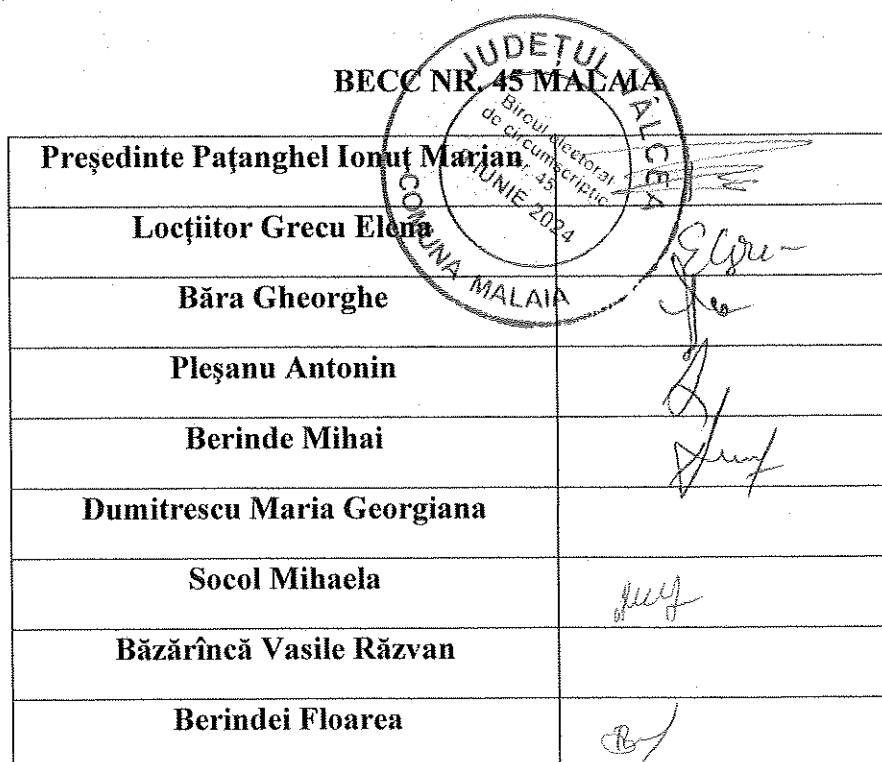 BECC NR. 45 MALAIA
JUDEȚUL VÂLCEA
Biroul electoral
de circumscripție
Nr. 45
9 IUNIE 2024
COMUNA MALAIA
Președinte Paţanghel Ionuţ Marian
Locțiitor Grecu Elena
Băra Gheorghe
Pleşanu Antonin
Berinde Mihai
Dumitrescu Maria Georgiana
Socol Mihaela
Băzărîncă Vasile Răzvan
Berindei Floarea